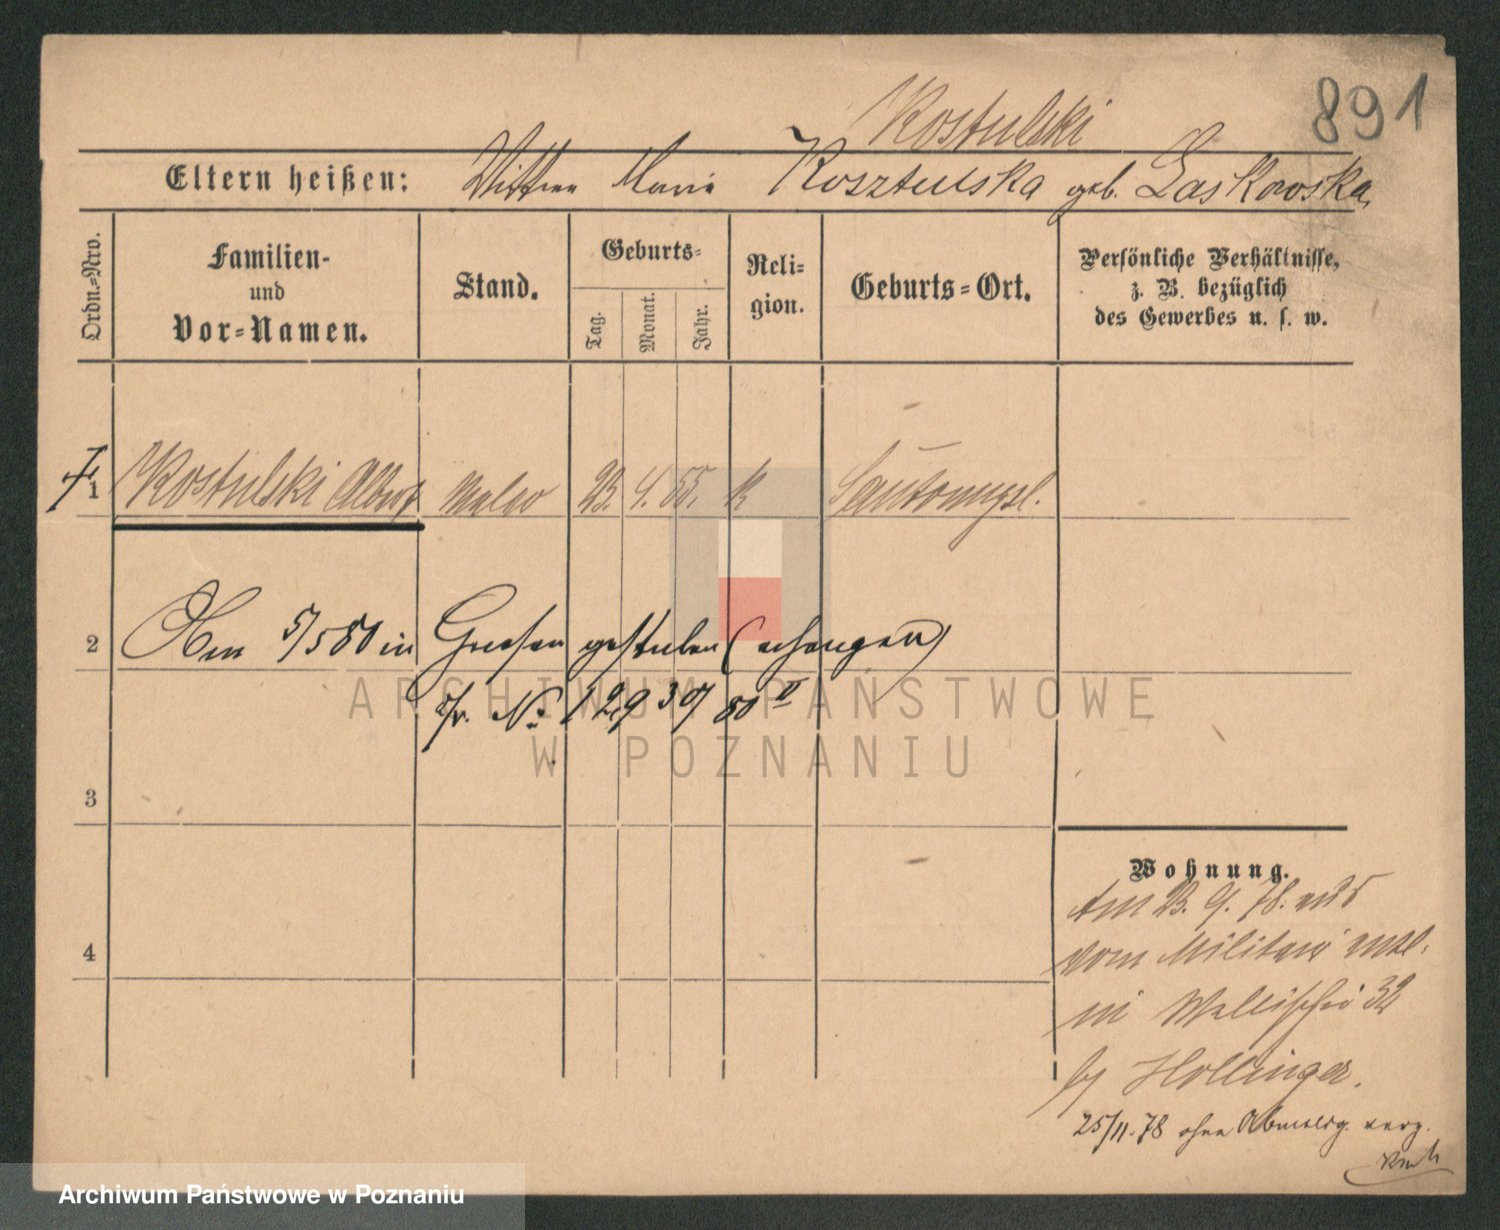 Kostulski
891
Eltern heißen: Wittwe Maria Kosztulska geb. Laskowska,
Ordn.-Nro.
Familien- und Vor-Namen.
Stand.
Geburts-
Tag.
Monat.
Jahr.
Reli-gion.
Geburts-Ort.
Persönliche Verhältnisse, z. B. bezüglich des Gewerbes u. s. w.
1 Kostulski Albert Maler 23. 4. 55. k Santomysl.
2 Am 5/5 80 in Gnesen gestorben (erhangen)
№ 12939 80 II
3
4
Wohnung.
Am 23. 9. 78. und
vom Militair entl.
in Wallischei 32
by Hollinger.
25/11. 78 ohne Abmeldg. verz.
ARCHIWUM PAŃSTWOWE
W POZNANIU
Archiwum Państwowe w Poznaniu